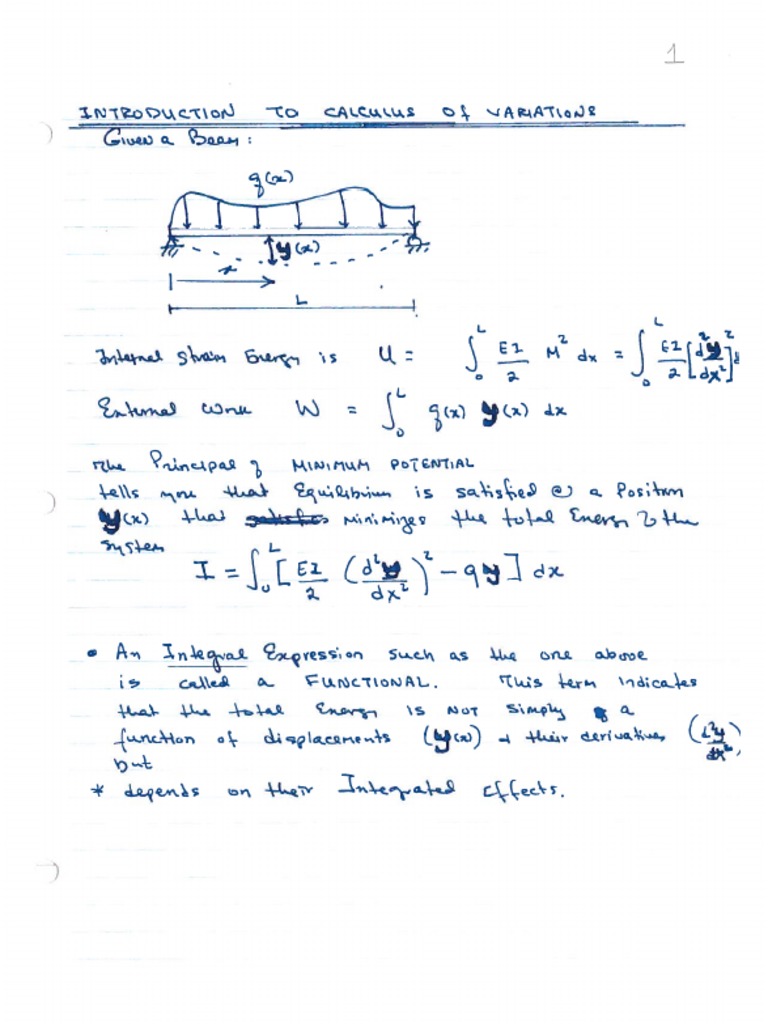 1
INTRODUCTION TO CALCULUS Of VARIATIONS
Given a Beam:
q(x)
y(x)
x
L
Internal Strain Energy is U = ∫₀ᴸ EI/2 M² dx = ∫₀ᴸ EI/2 [d²y/dx²]²
External Work W = ∫₀ᴸ q(x) y(x) dx
The Principal of MINIMUM POTENTIAL
tells you that Equilibrium is satisfied @ a Position
y(x) that minimizes the total Energy of the
system
I = ∫₀ᴸ [EI/2 (d²y/dx²)² - qy] dx
• An Integral Expression such as the one above
is called a FUNCTIONAL. This term indicates
that the total Energy is NOT simply a
function of displacements (y(x)) + their derivatives (d²y/dx²)
but
* depends on their Integrated Effects.